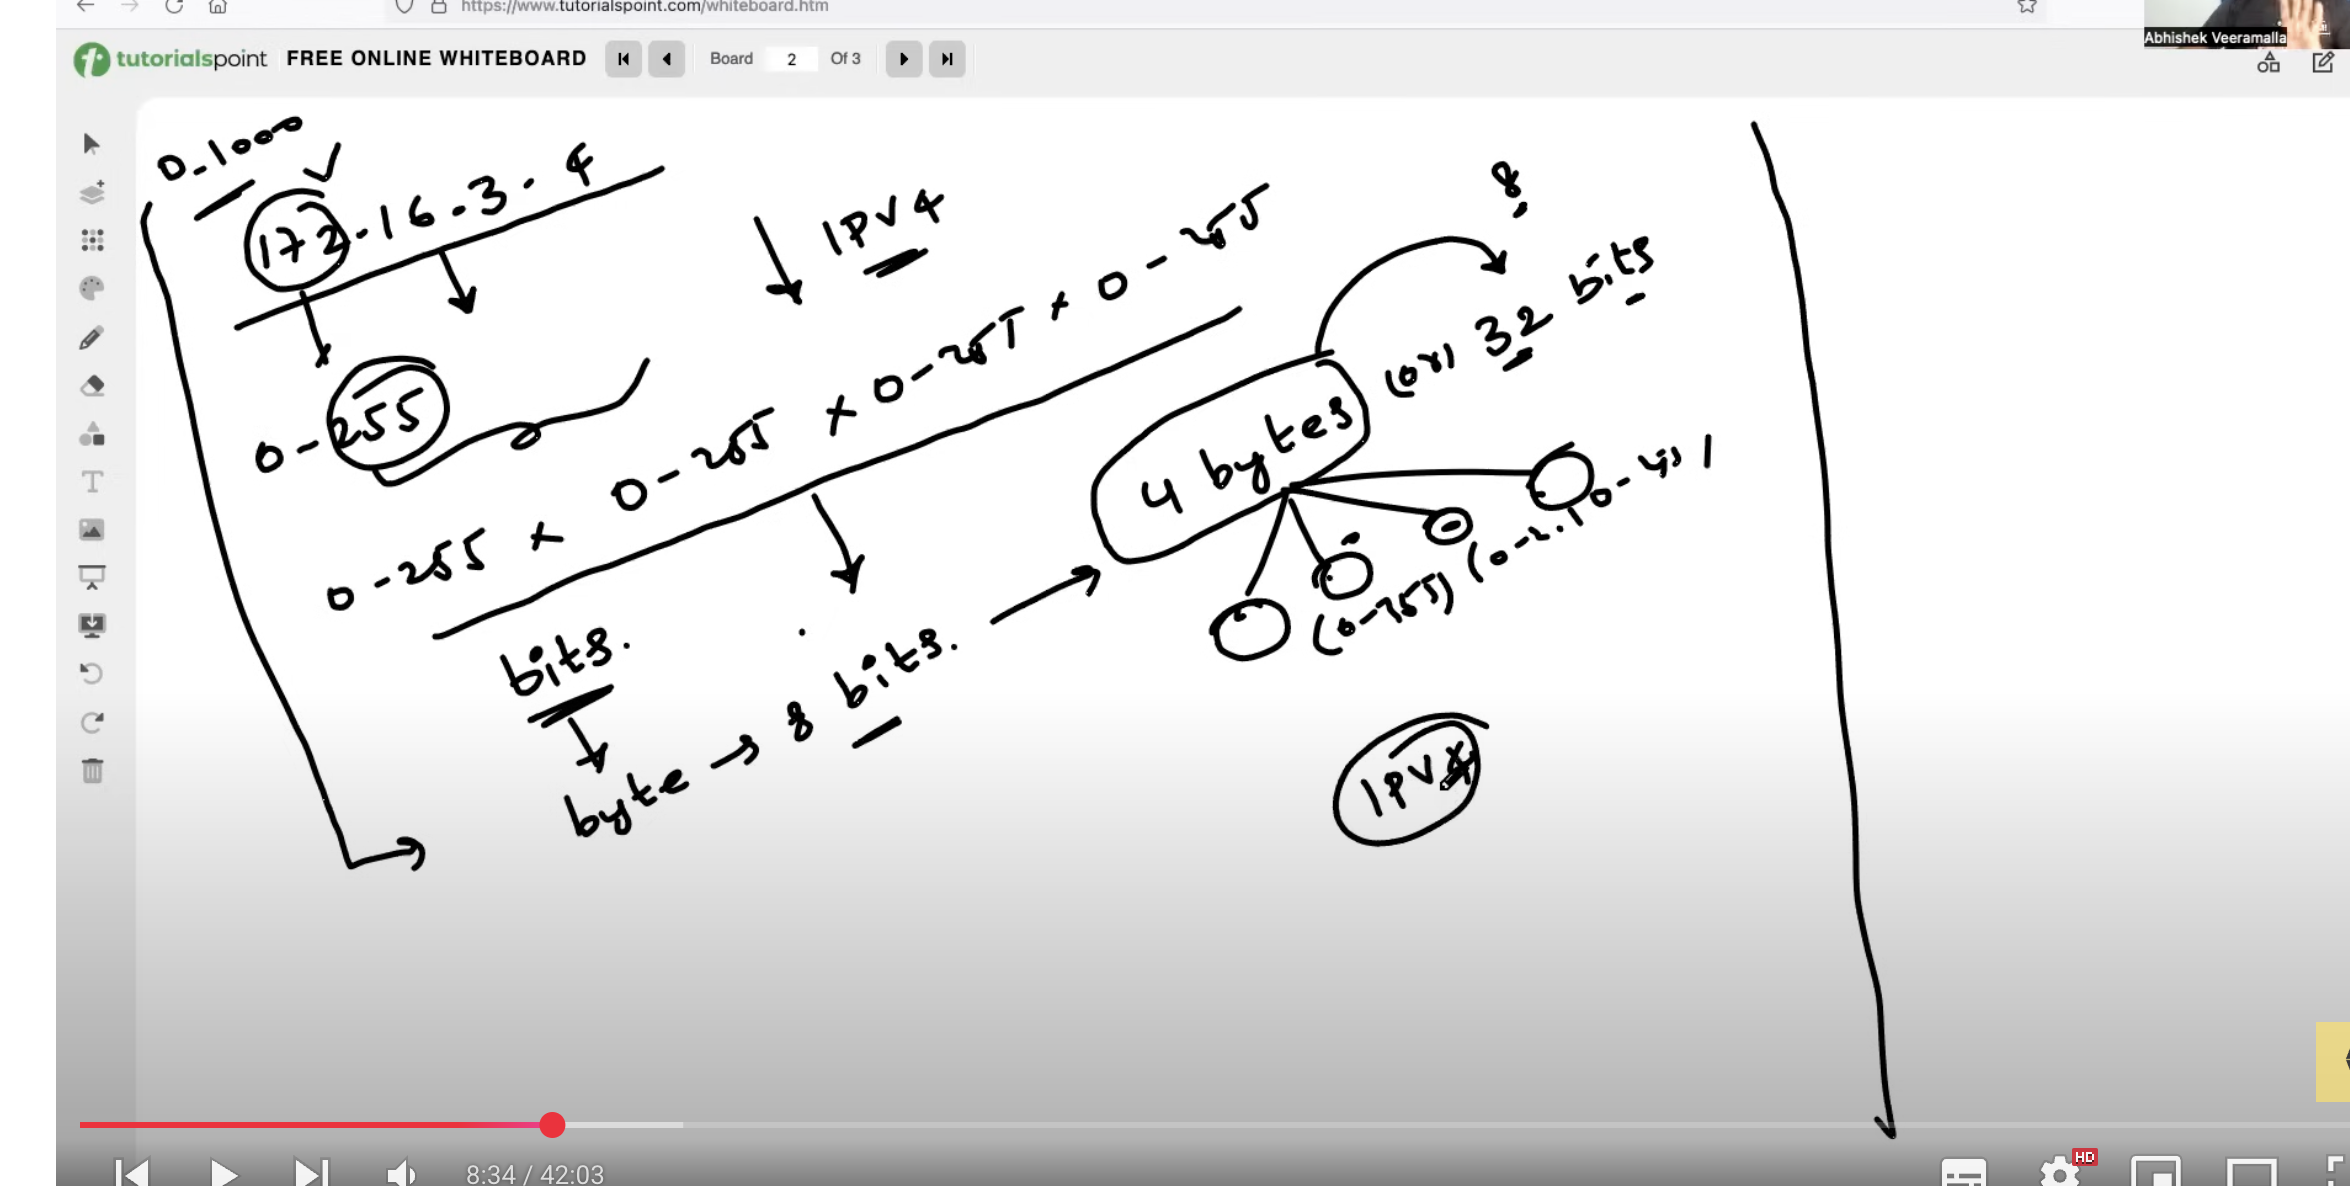 https://www.tutorialspoint.com/whiteboard.htm
Abhishek Veeramalla
tutorialspoint FREE ONLINE WHITEBOARD Board 2 Of 3
0-1000
172.16.3.4
IPV4
8
0-255
0-255 x 0-255 x 0-255 x 0-255
4 bytes (or) 32 bits
(0-255)
bits.
byte → 8 bits.
IPV4
8:34 / 42:03
HD